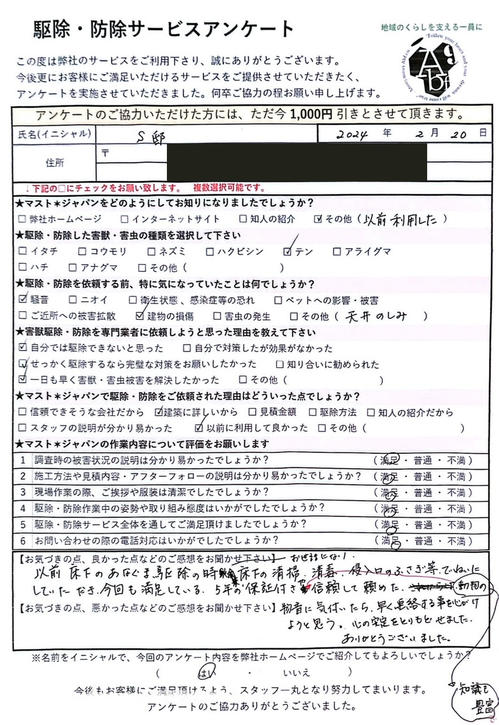 駆除・防除サービスアンケート
地域のくらしを支える一員に
この度は弊社のサービスをご利用下さり、誠にありがとうございます。
今後更にお客様にご満足いただけるサービスをご提供させていただきたく、
アンケートを実施させていただきました。何卒ご協力の程お願い申し上げます。
アンケートのご協力いただけた方には、ただ今1,000円 引きとさせて頂きます。
氏名(イニシャル) S 邸 2024 年 2 月 20 日
住所 〒
↓下記の□にチェックをお願い致します。 複数選択可能です。
★マスト✳ジャパンをどのようにしてお知りになりましたでしょうか？
□弊社ホームページ □インターネットサイト □知人の紹介 ☑その他(以前利用した)
★駆除・防除した害獣・害虫の種類を選択して下さい
□イタチ □コウモリ □ネズミ □ハクビシン ☑テン □アライグマ
□ハチ □アナグマ □その他( )
★駆除・防除を依頼する前、特に気になっていたことは何でしょうか？
☑騒音 □ニオイ □衛生状態、感染症等の恐れ □ペットへの影響・被害
□ご近所への被害拡散 ☑建物の損傷 □害虫の発生 □その他(天井のしみ)
★害獣駆除・防除を専門業者に依頼しようと思った理由を教えて下さい
☑自分では駆除できないと思った □自分で対策したが効果がなかった
☑せっかく駆除するなら完璧な対策をお願いしたかった □知り合いに勧められた
☑一日も早く害獣・害虫被害を解決したかった □その他( )
★マスト✳ジャパンで駆除・防除をご依頼された理由はどういった点でしょうか？
□信頼できそうな会社だから ☑建築に詳しいから □見積金額 □駆除方法 □知人の紹介だから
□スタッフの説明が分かり易かった ☑以前に利用して良かった □その他( )
★マスト✳ジャパンの作業内容について評価をお願いします
1 調査時の被害状況の説明は分かり易かったでしょうか？ (満足・普通・不満)
2 施工方法や見積内容・アフターフォローの説明は分かり易かったでしょうか？ (満足・普通・不満)
3 現場作業の際、ご挨拶や服装は清潔でしたでしょうか？ (満足・普通・不満)
4 駆除・防除作業中の姿勢や取り組み態度はいかがでしたでしょうか？ (満足・普通・不満)
5 駆除・防除サービス全体を通してご満足頂けましたでしょうか？ (満足・普通・不満)
6 お問い合わせの際の電話対応はいかがでしたでしょうか？ (満足・普通・不満)
【お気づきの点、良かった点などのご感想をお聞かせ下さい】 お世話になり
以前 床下のあなぐま駆除の時 床下の清掃、消毒、侵入口のふさぎ等ていねいに
していただき、今回も満足している。5年の保証付き 信頼して頼めた。 動物の
知識も
豊富
【お気づきの点、悪かった点などのご感想をお聞かせ下さい】 物音に気付いたら、早く連絡する事を心がけ
ようと思う。心の安定をとりもどせました。
ありがとうございました。
※名前をイニシャルで、今回のアンケート内容を弊社ホームページでご紹介してもよろしいでしょうか？
( はい ・ いいえ )
今後もお客様にご満足頂けるよう、スタッフ一丸となり努力してまいります。
アンケートのご協力ありがとうございました。